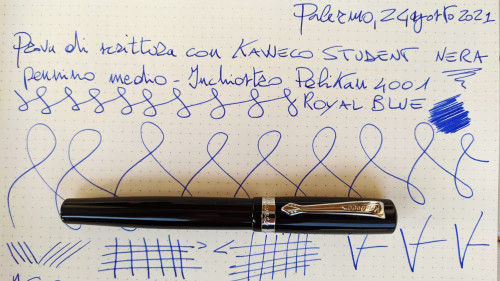 Palermo, 24 agosto 2021
Prova di scrittura con KAWECO STUDENT NERA
pennino medio - Inchiostro Pelikan 4001
ROYAL BLUE